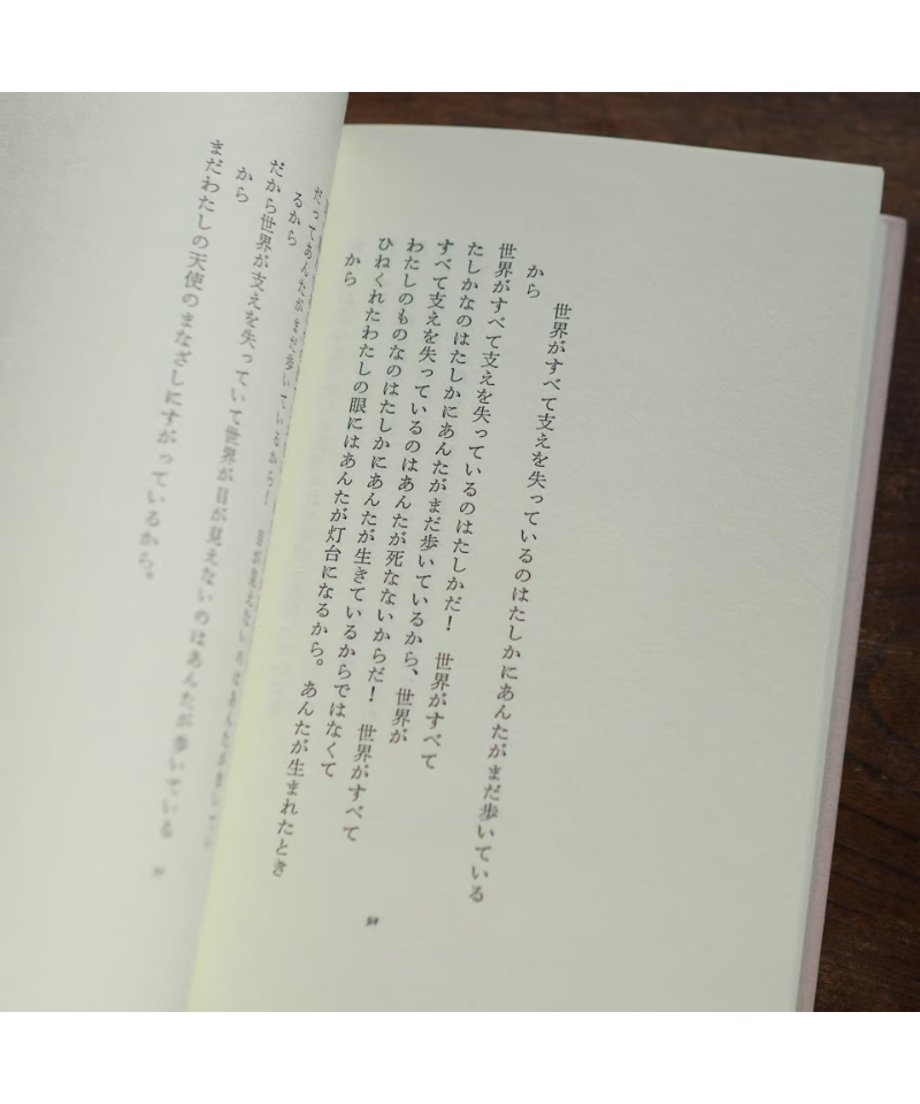 世界がすべて支えを失っているのはたしかにあんたがまだ歩いている
から
世界がすべて支えを失っているのはたしかだ！　世界がすべて
たしかなのはたしかにあんたがまだ歩いているから、世界が
すべて支えを失っているのはあんたが死なないからだ！　世界がすべて
わたしのものなのはたしかにあんたが生きているからではなくて
ひねくれたわたしの眼にはあんたが灯台になるから。あんたが生まれたとき
から
だってあんたがまだ歩いているから！　目が見えないのはあんたが
るから
だから世界が支えを失っていて世界が目が見えないのはあんたが歩いている
から
まだわたしの天使のまなざしにすがっているから。